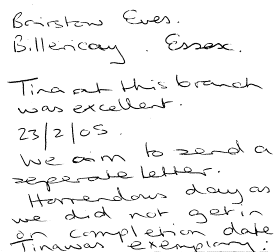 Bairstow Eves.
Billericay. Essex.
Tina at this branch
was excellent.
23/2/05.
We aim to send a
seperate letter.
Horrendous day as
we did not get in
on completion date
Tina was exemplary.